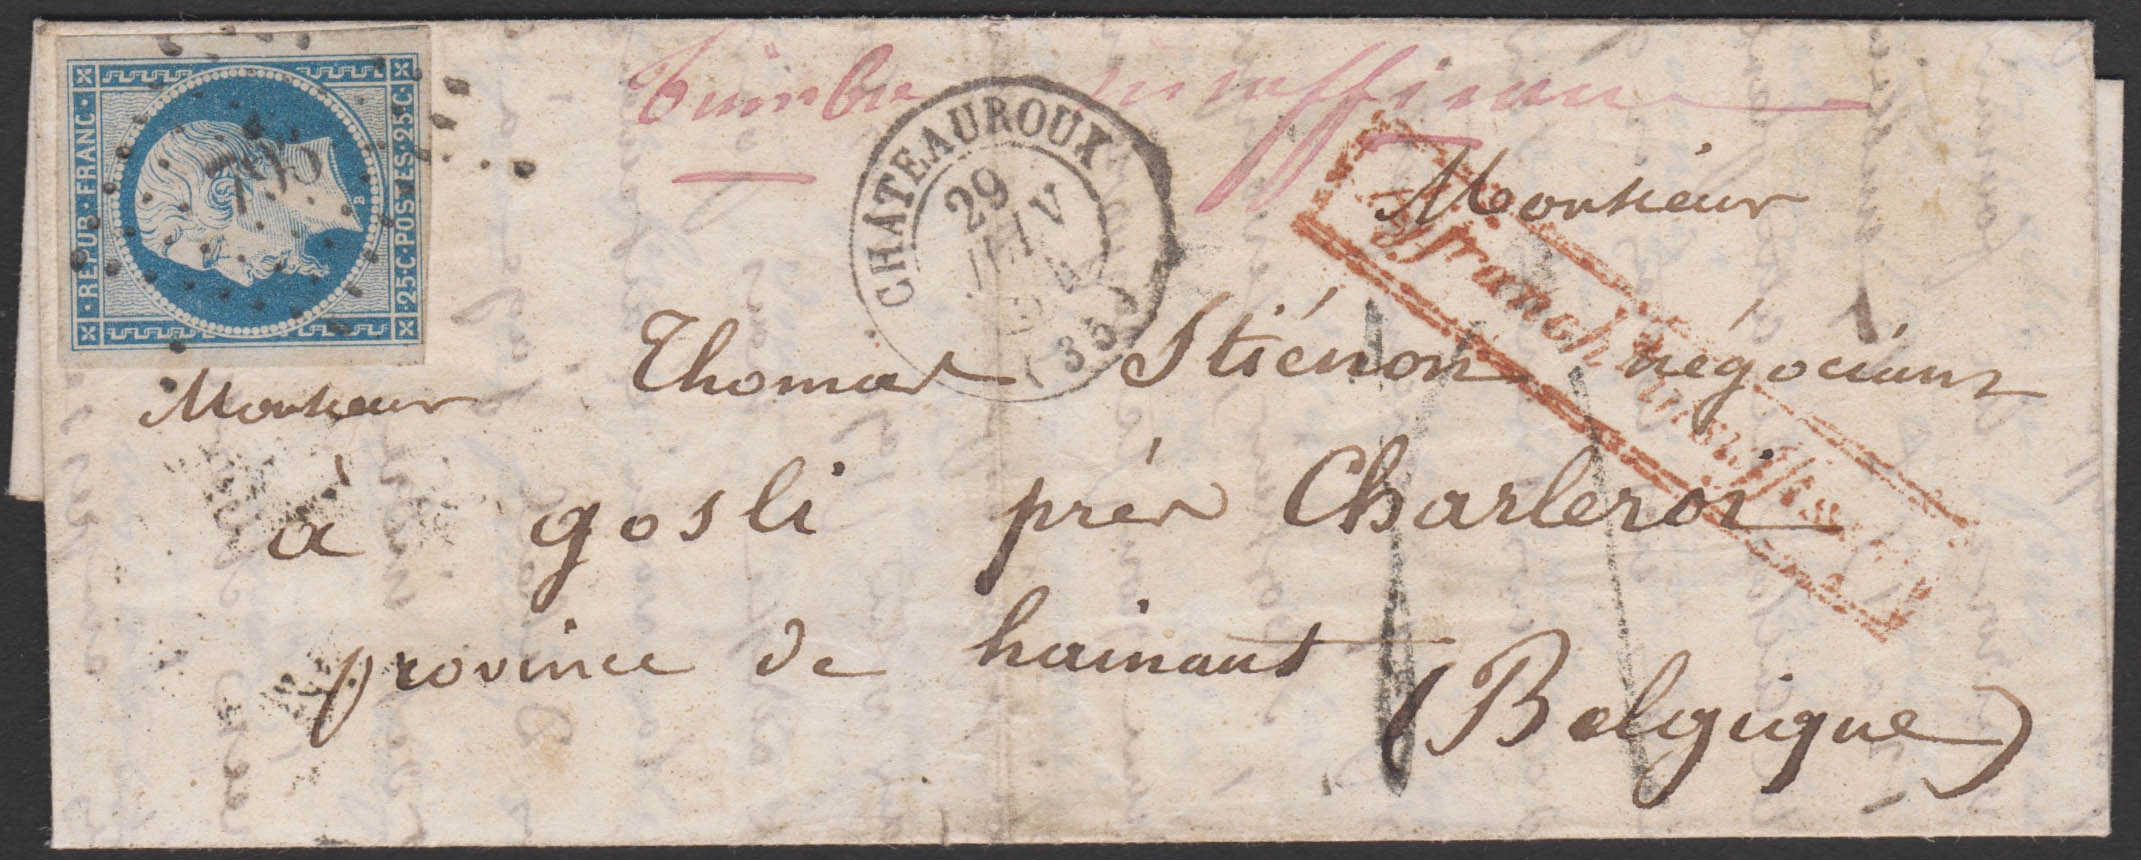 REPUB·FRANC·
25·C·POSTES·25C·
B
795
Timbre insuffisant
CHATEAUROUX
29
JANV
54
(35)
Affranch. insuffisant
Monsieur
Monsieur
Thomas Stiénon négociant
à gosli près Charleroi
province de hainaut
(Belgique)